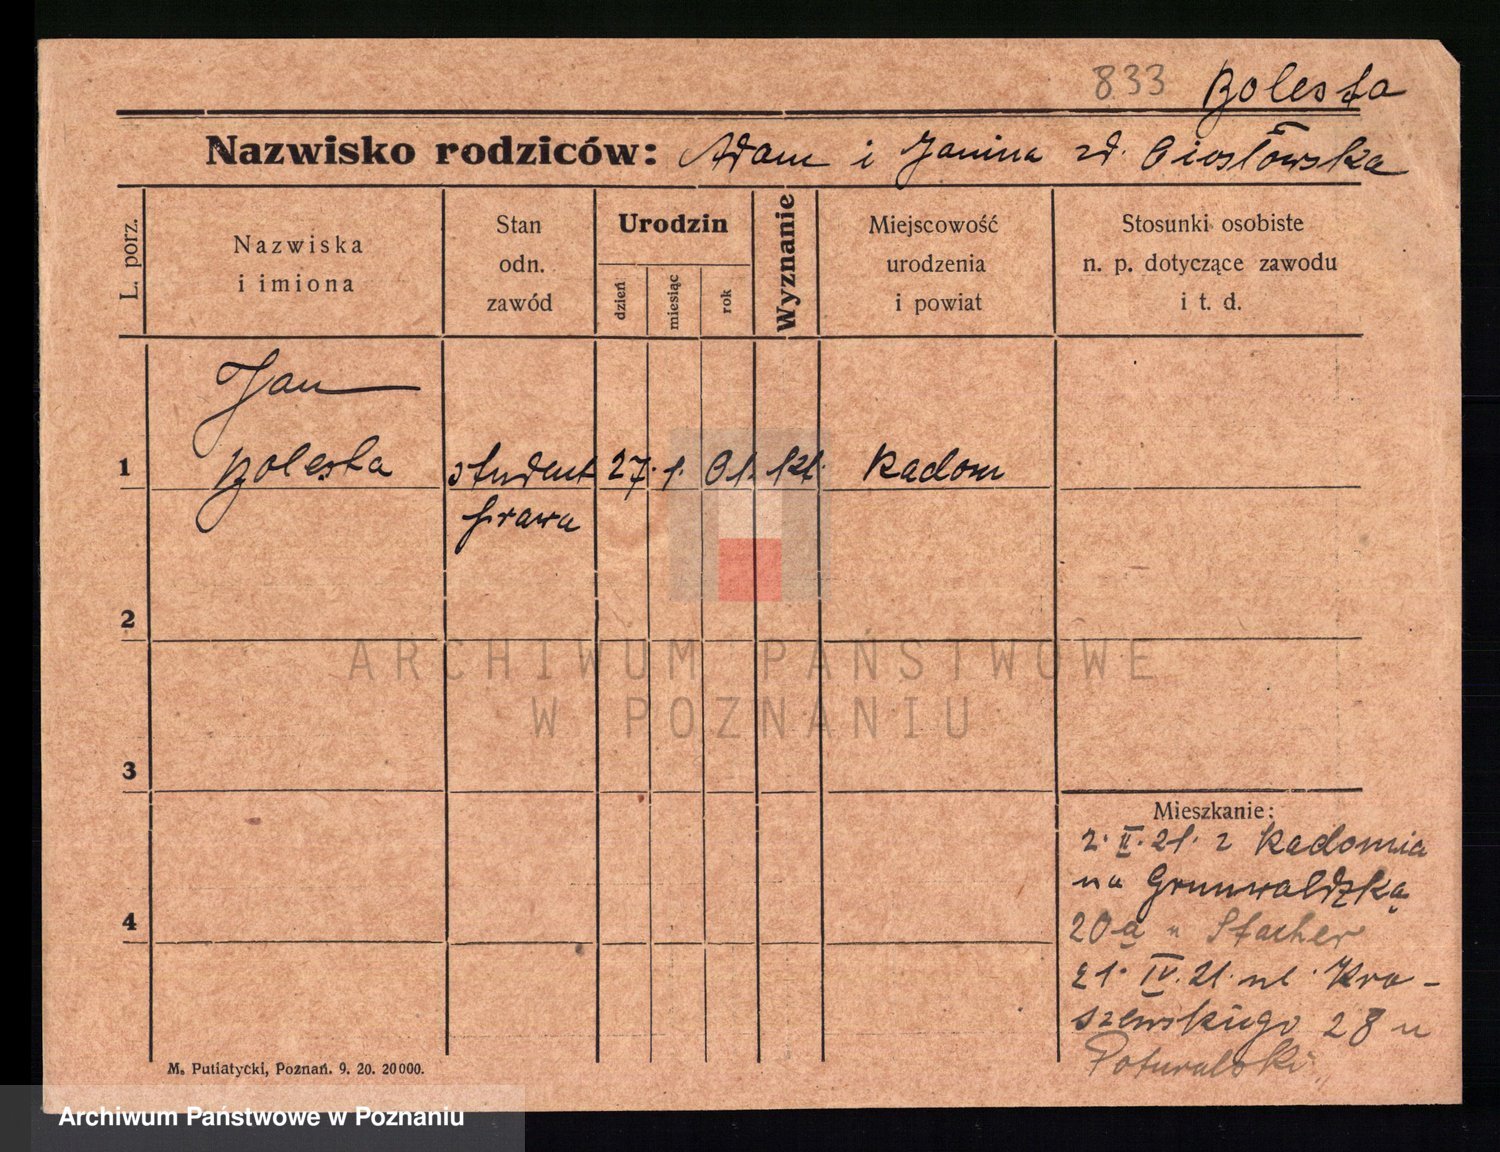 833 Bolesta
Nazwisko rodziców: Adam i Janina zd. Ciosłowska
L. porz.
Nazwiska
i imiona
Stan
odn.
zawód
Urodzin
dzień
miesiąc
rok
Wyznanie
Miejscowość
urodzenia
i powiat
Stosunki osobiste
n. p. dotyczące zawodu
i t. d.
Jan
1 Bolesta student 27. 1. 01. kt. Radom
prawa
2
3
4
Mieszkanie:
2. II. 21. z Radomia
na Grunwaldzką
20a u Stacher
21. IV. 21. ul. Kra-
szewskiego 28 u
Poturalski
M. Putiatycki, Poznań. 9. 20. 20000.
ARCHIWUM PAŃSTWOWE
W POZNANIU
Archiwum Państwowe w Poznaniu